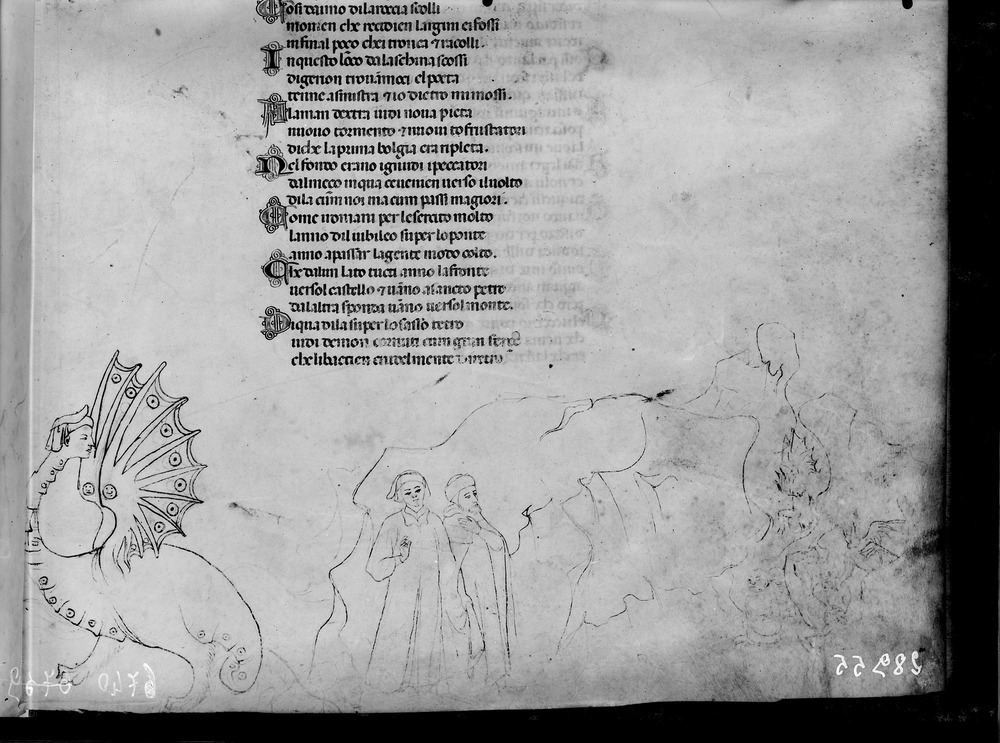 Cosi da imo dila rocia scolli
movien che recidien largini eifossi
infinal poço chei tronca ⁊ racolli.
In questo loco dalaschina scossi
di gerion trovamoci el poeta
tenne asinistra ⁊ io dietro mi mossi.
Alaman dextra vidi nova pieta
nuovo tormento ⁊ nuovi frustatori
diche laprima bolgia era repleta.
Nel fondo erano ignudi ipeccatori
dalmeço inqua cevenien verso ilvolto
dila cum noi ma cum passi magiori.
Come iromani per leserceto molto
lanno dil iubileo super loponte
anno apassar lagente modo colto.
Che dalun lato tucti anno lafronte
versol castello ⁊ vano asancto petro
dalaltra sponda vano versol monte.
Diqua dila super losasso tetro
vidi demon cornuti cum gran ferçe
che libatien crudelmente diretro
6739 6740
28955